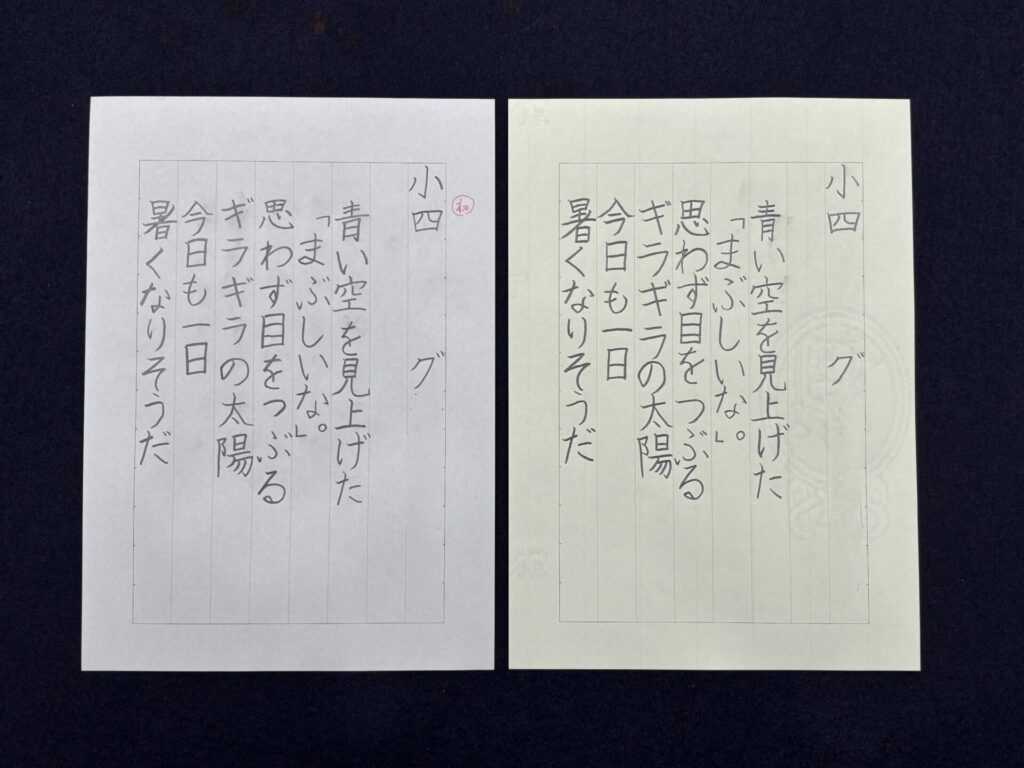 小四 グ
青い空を見上げた
「まぶしいな。」
思わず目をつぶる
ギラギラの太陽
今日も一日
暑くなりそうだ
小四 グ
青い空を見上げた
「まぶしいな。」
思わず目をつぶる
ギラギラの太陽
今日も一日
暑くなりそうだ